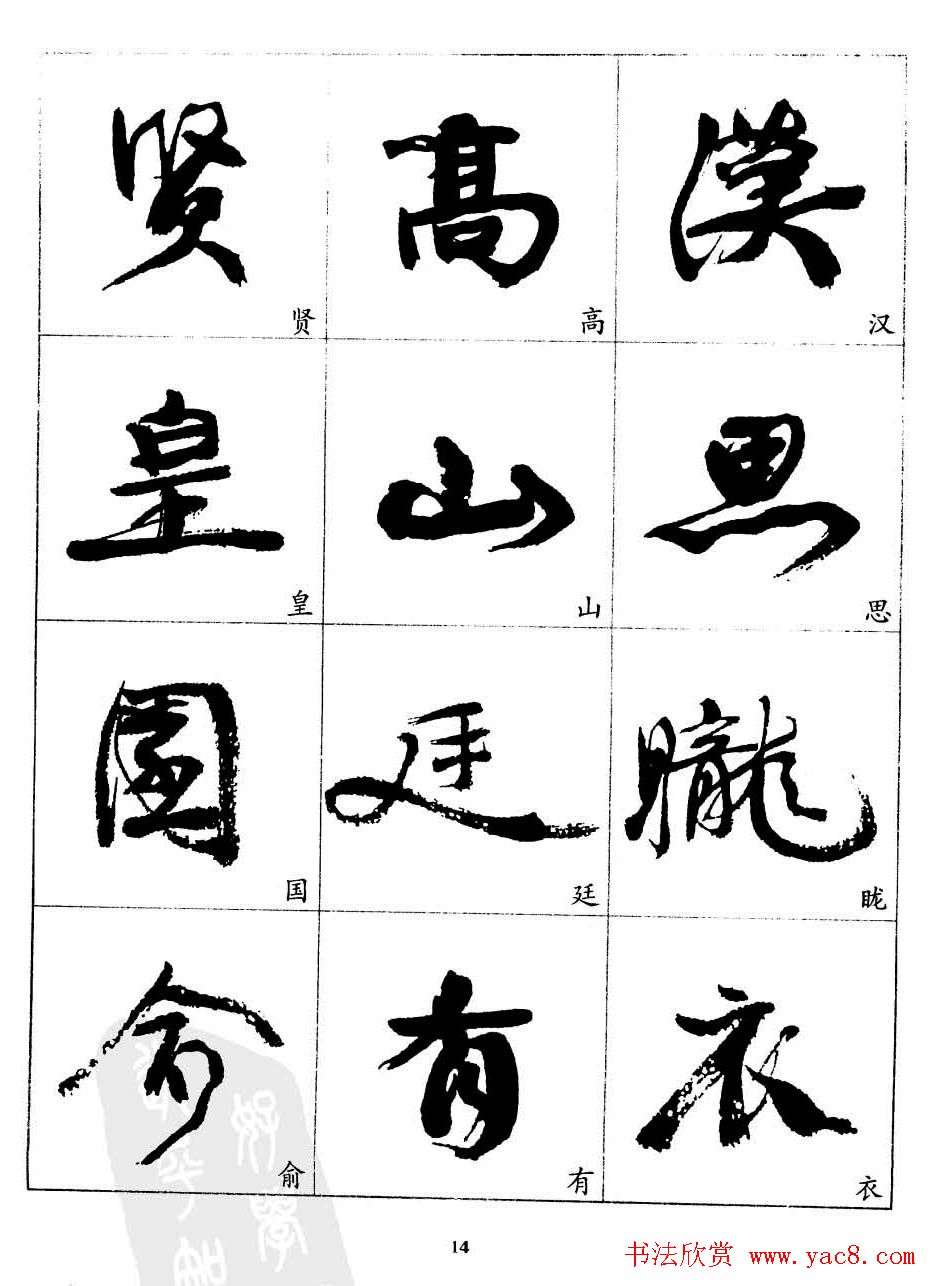 贤 高 漢
贤 高 汉
皇 山 思
皇 山 思
国 廷 朧
国 廷 眬
俞 有 衣
俞 有 衣
14
书法欣赏 www.yac8.com